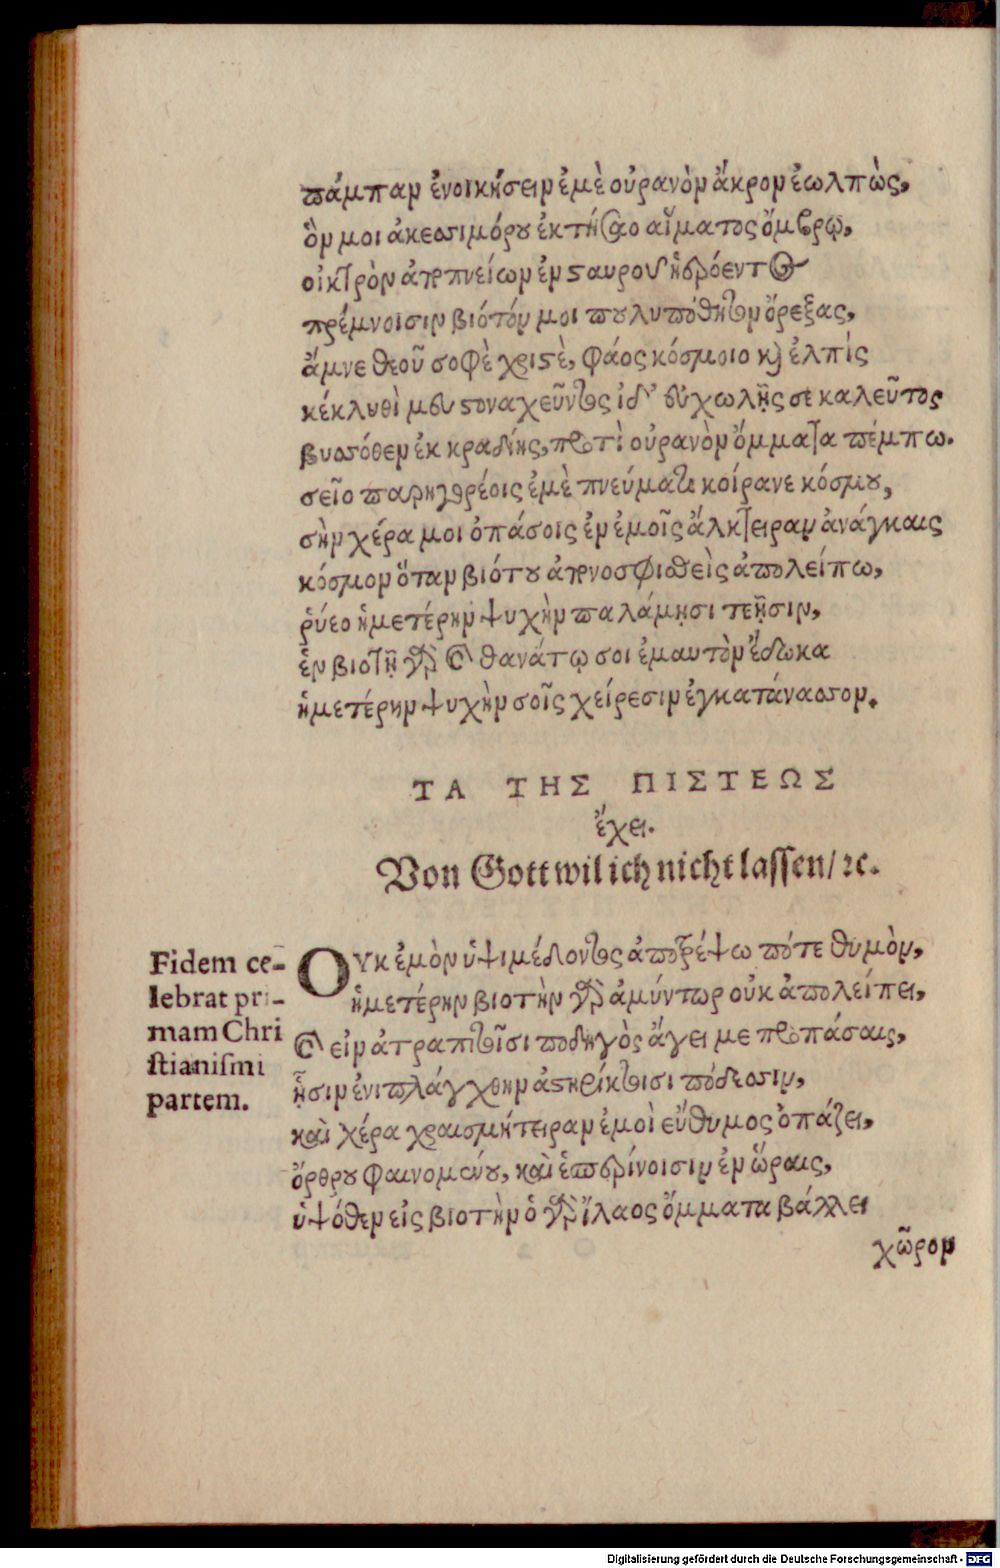 πάμπαν ἐνοικήσειν ἐμὲ οὐρανὸν ἄκρον ἐωλπὼς,
ὃν μοι ἀκεσσιμόρου ἐκτήσαο αἵματος ὄμβρῳ,
οἰκτρὸν ἀποπνείων ἐν σαυροῦ
πρέμνοισιν βιότόν μοι πουλυπόθητον ὄρεξας,
ἄμνε θεοῦ σοφὲ χριστὲ, φάος κόσμοιο καὶ ἐλπὶς
κέκλυθὶ μευ στοναχεῦντος ἰδ' εὐχωλῇς σε καλεῦτος
βυσσόθεν ἐκ κραδίης, προτὶ οὐρανὸν ὄμματα πέμπω.
σεῖο παρηγορέοις ἐμὲ πνεύματι κοίρανε κόσμου,
σὴν χέρα μοι ὀπάσοις ἐν ἐμοῖς ἄλκτειραν ἀνάγκαις
κόσμον ὅταν βιότου ἀπονοσφισθεὶς ἀπολείπω,
ῥύεο ἡμετέρην ψυχὴν παλάμῃσι τεῇσιν,
ἐν βιοτῇ γὰρ καὶ θανάτῳ σοι ἐμαυτὸν ἔδωκα
ἡμετέρην ψυχὴν σοῖς χείρεσιν ἐγκατάνασσον.
ΤΑ ΤΗΣ ΠΙΣΤΕΩΣ
ἔχει.
Von Gott wil ich nicht lassen/ ꝛc.
Fidem ce-
lebrat pri-
mam Chri
stianismi
partem.
ΟΥκ ἐμὸν ὑψιμέδοντος ἀποτρέψω πότε θυμὸν,
ἡμετέρην βιοτὴν γὰρ ἀμύντωρ οὐκ ἀπολείπει,
καὶ εἰν ἀτραπιτοῖσι ποδηγὸς ἄγει με προπάσαις,
ᾗσιν ἐνιπλάγχθην ἀστηρίκτοισι πόδεσσιν,
καὶ χέρα χραισμήτειραν ἐμοὶ εὔθυμος ὀπάζει,
ὄρθρου φαινομένου, καὶ ἑσπερίνοισιν ἐν ὥραις,
ὑψόθεν εἰς βιοτὴν ὁ γὰρ ἵλαος ὄμματα βάλλει
χῶρον
Digitalisierung gefördert durch die Deutsche Forschungsgemeinschaft - DFG